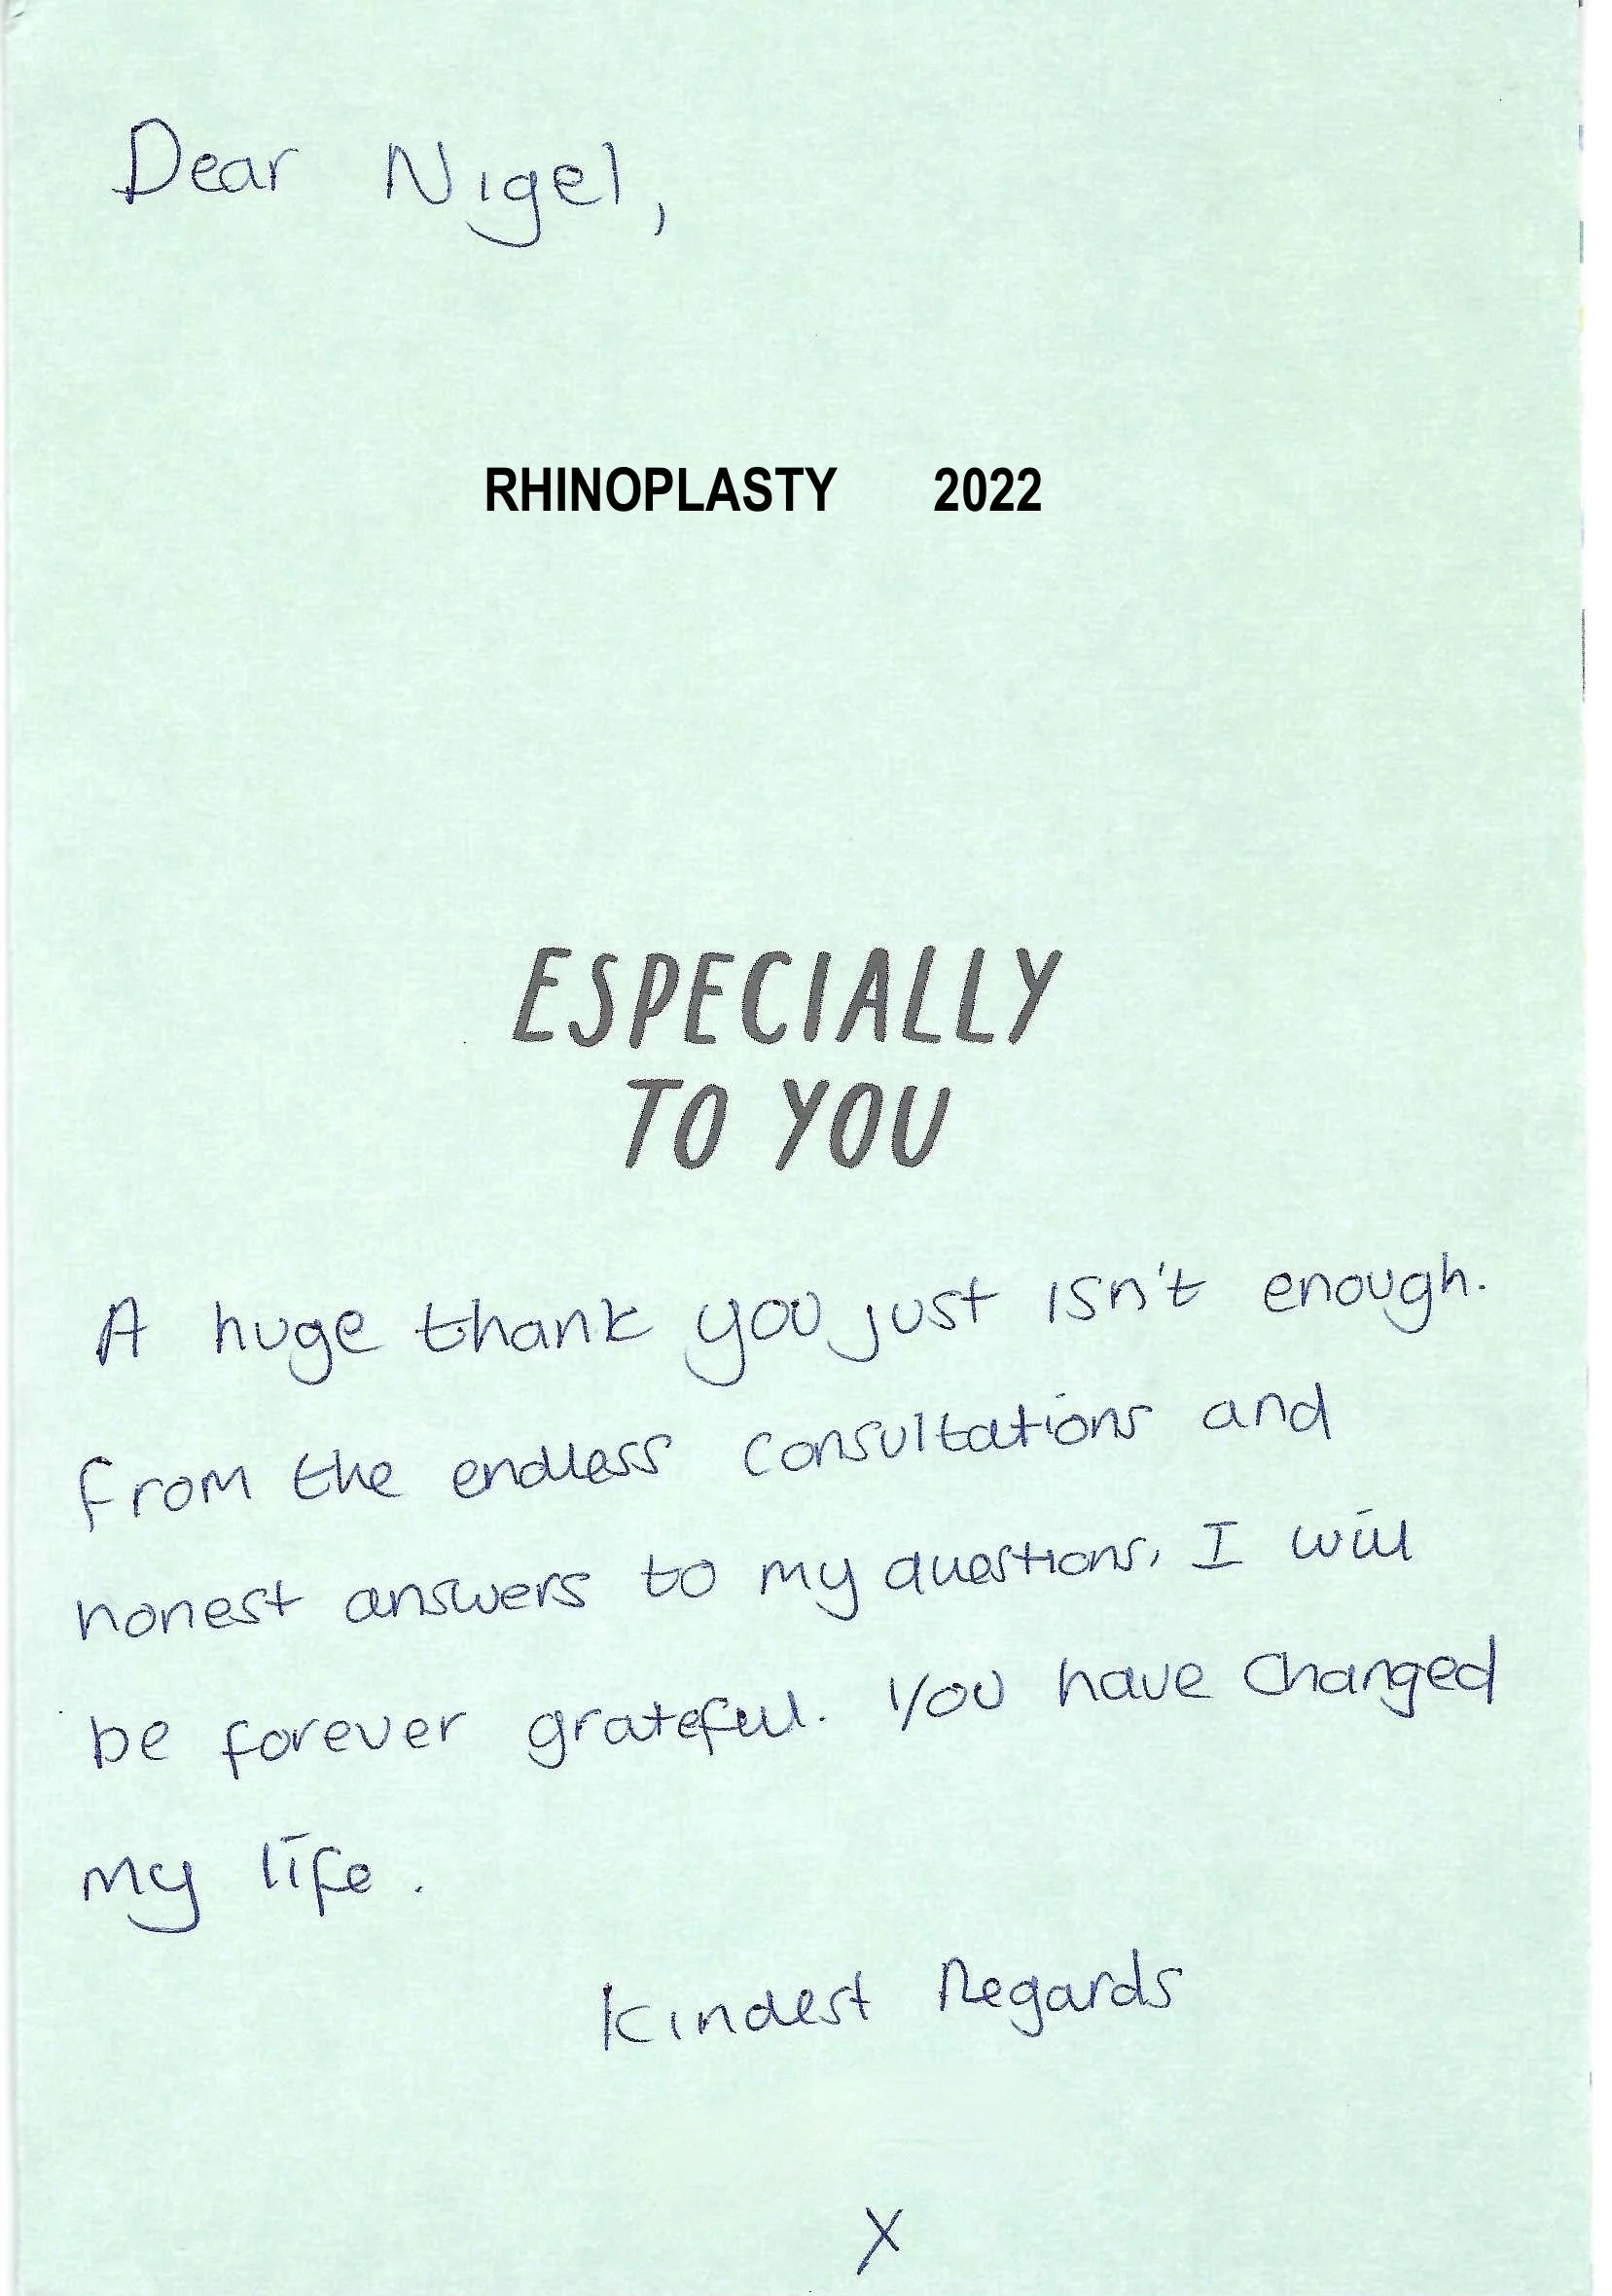 Dear Nigel,
RHINOPLASTY 2022
ESPECIALLY
TO YOU
A huge thank you just isn't enough.
From the endless consultations and
honest answers to my questions, I will
be forever grateful. You have changed
my life.
Kindest Regards
X